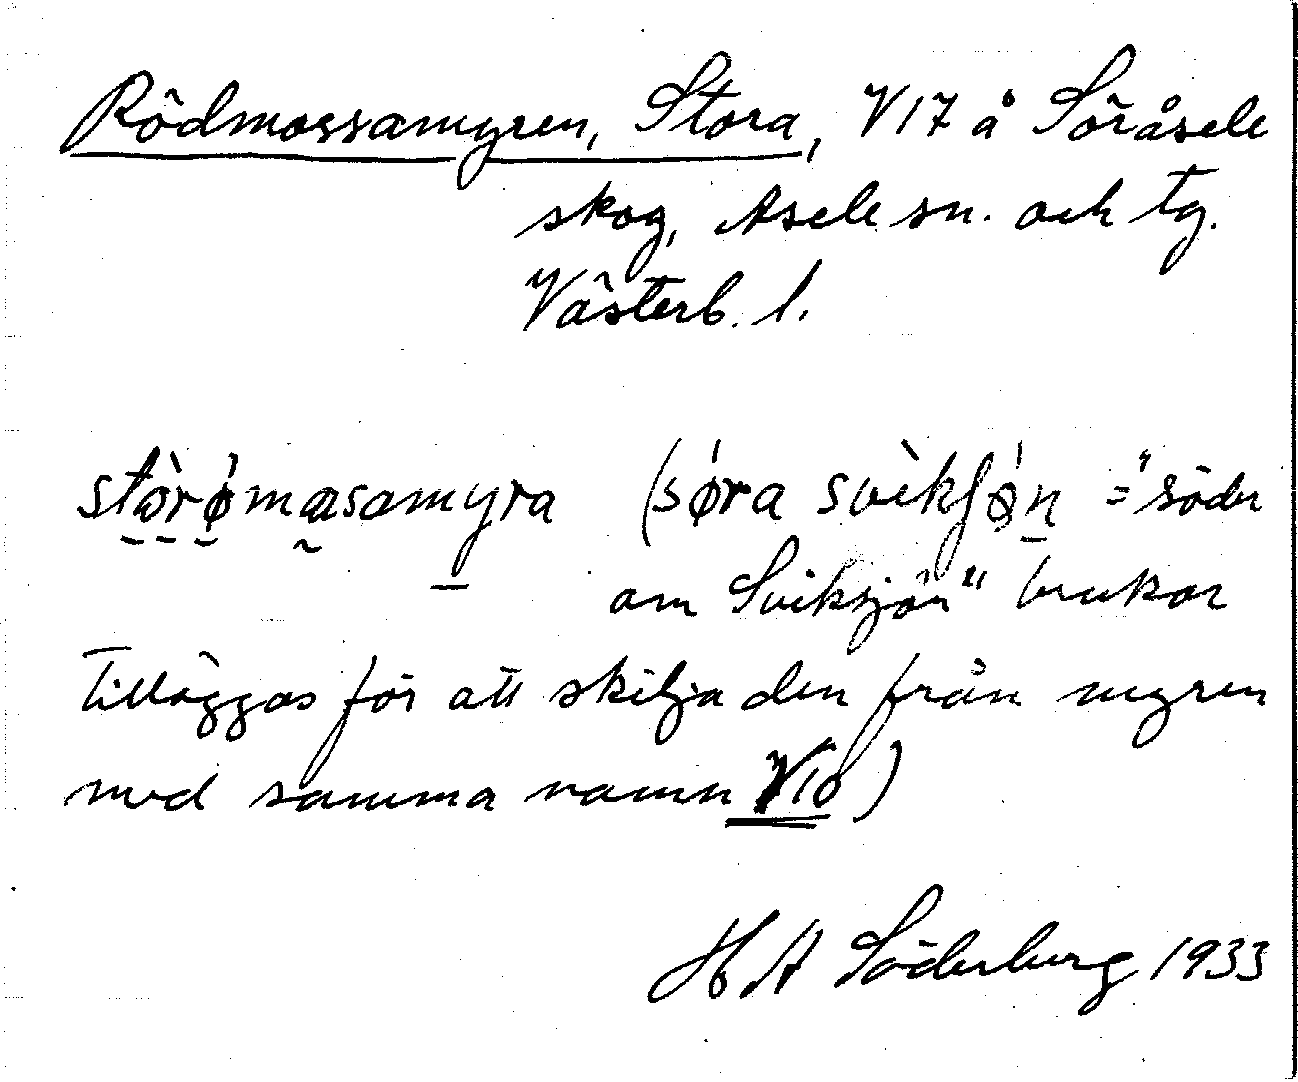 Rödmossamyren, Stora, V17 å Söråsele
skog, Åsele sn. och tg.
Västerb. l.
stòrǿmasamyra (sǿra svìkʃǿn = "söder
om Sviksjön" brukar
tilläggas för att skilja den från myren
med samma namn V10)
H A Söderberg 1933